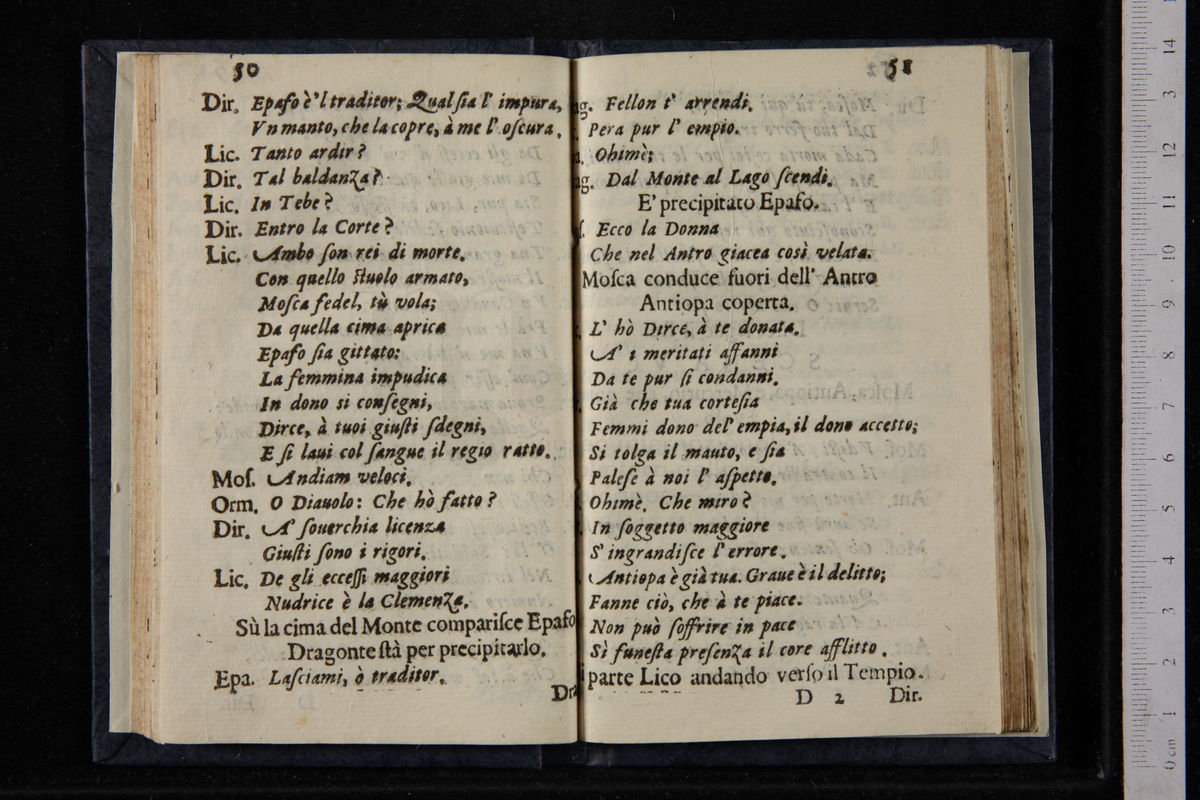 50
Dir. Epafo è'l traditor; Qual ſia l' impura,
Vn manto, che la copre, à me l' oſcura.
Lic. Tanto ardir?
Dir. Tal baldanza?
Lic. In Tebe?
Dir. Entro la Corte?
Lic. Ambo ſon rei di morte.
Con quello ſtuolo armato,
Moſca fedel, tù vola;
Da quella cima aprica
Epafo ſia gittato:
La femmina impudica
In dono si conſegni,
Dirce, à tuoi giuſti ſdegni,
E ſi laui col ſangue il regio ratto.
Moſ. Andiam veloci.
Orm. O Diauolo: Che hò fatto?
Dir. A' ſouerchia licenza
Giuſti ſono i rigori.
Lic. De gli ecceſſi maggiori
Nudrice è la Clemenza.
Sù la cima del Monte compariſce Epafo
Dragonte ſtà per precipitarlo.
Epa. Laſciami, ò traditor.
Dra
51
ag. Fellon t' arrendi.
Pera pur l' empio.
a. Ohimè;
ag. Dal Monte al Lago ſcendi.
E' precipitato Epafo.
ſ. Ecco la Donna
Che nel Antro giacea così velata.
Moſca conduce fuori dell' Antro
Antiopa coperta.
L' hò Dirce, à te donata.
A' i meritati affanni
Da te pur ſi condanni.
Già che tua corteſia
Femmi dono del' empia, il dono accetto;
Si tolga il mauto, e ſia
Paleſe à noi l' aſpetto.
Ohimè. Che miro?
In ſoggetto maggiore
S' ingrandiſce l' errore.
Antiopa è già tua. Graue è il delitto;
Fanne ciò, che à te piace.
Non può ſoffrire in pace
Sì funeſta preſenza il core afflitto.
parte Lico andando verſo il Tempio.
D 2 Dir.
14
3
12
11
10
9
8
7
6
5
4
3
2
1
0 cm